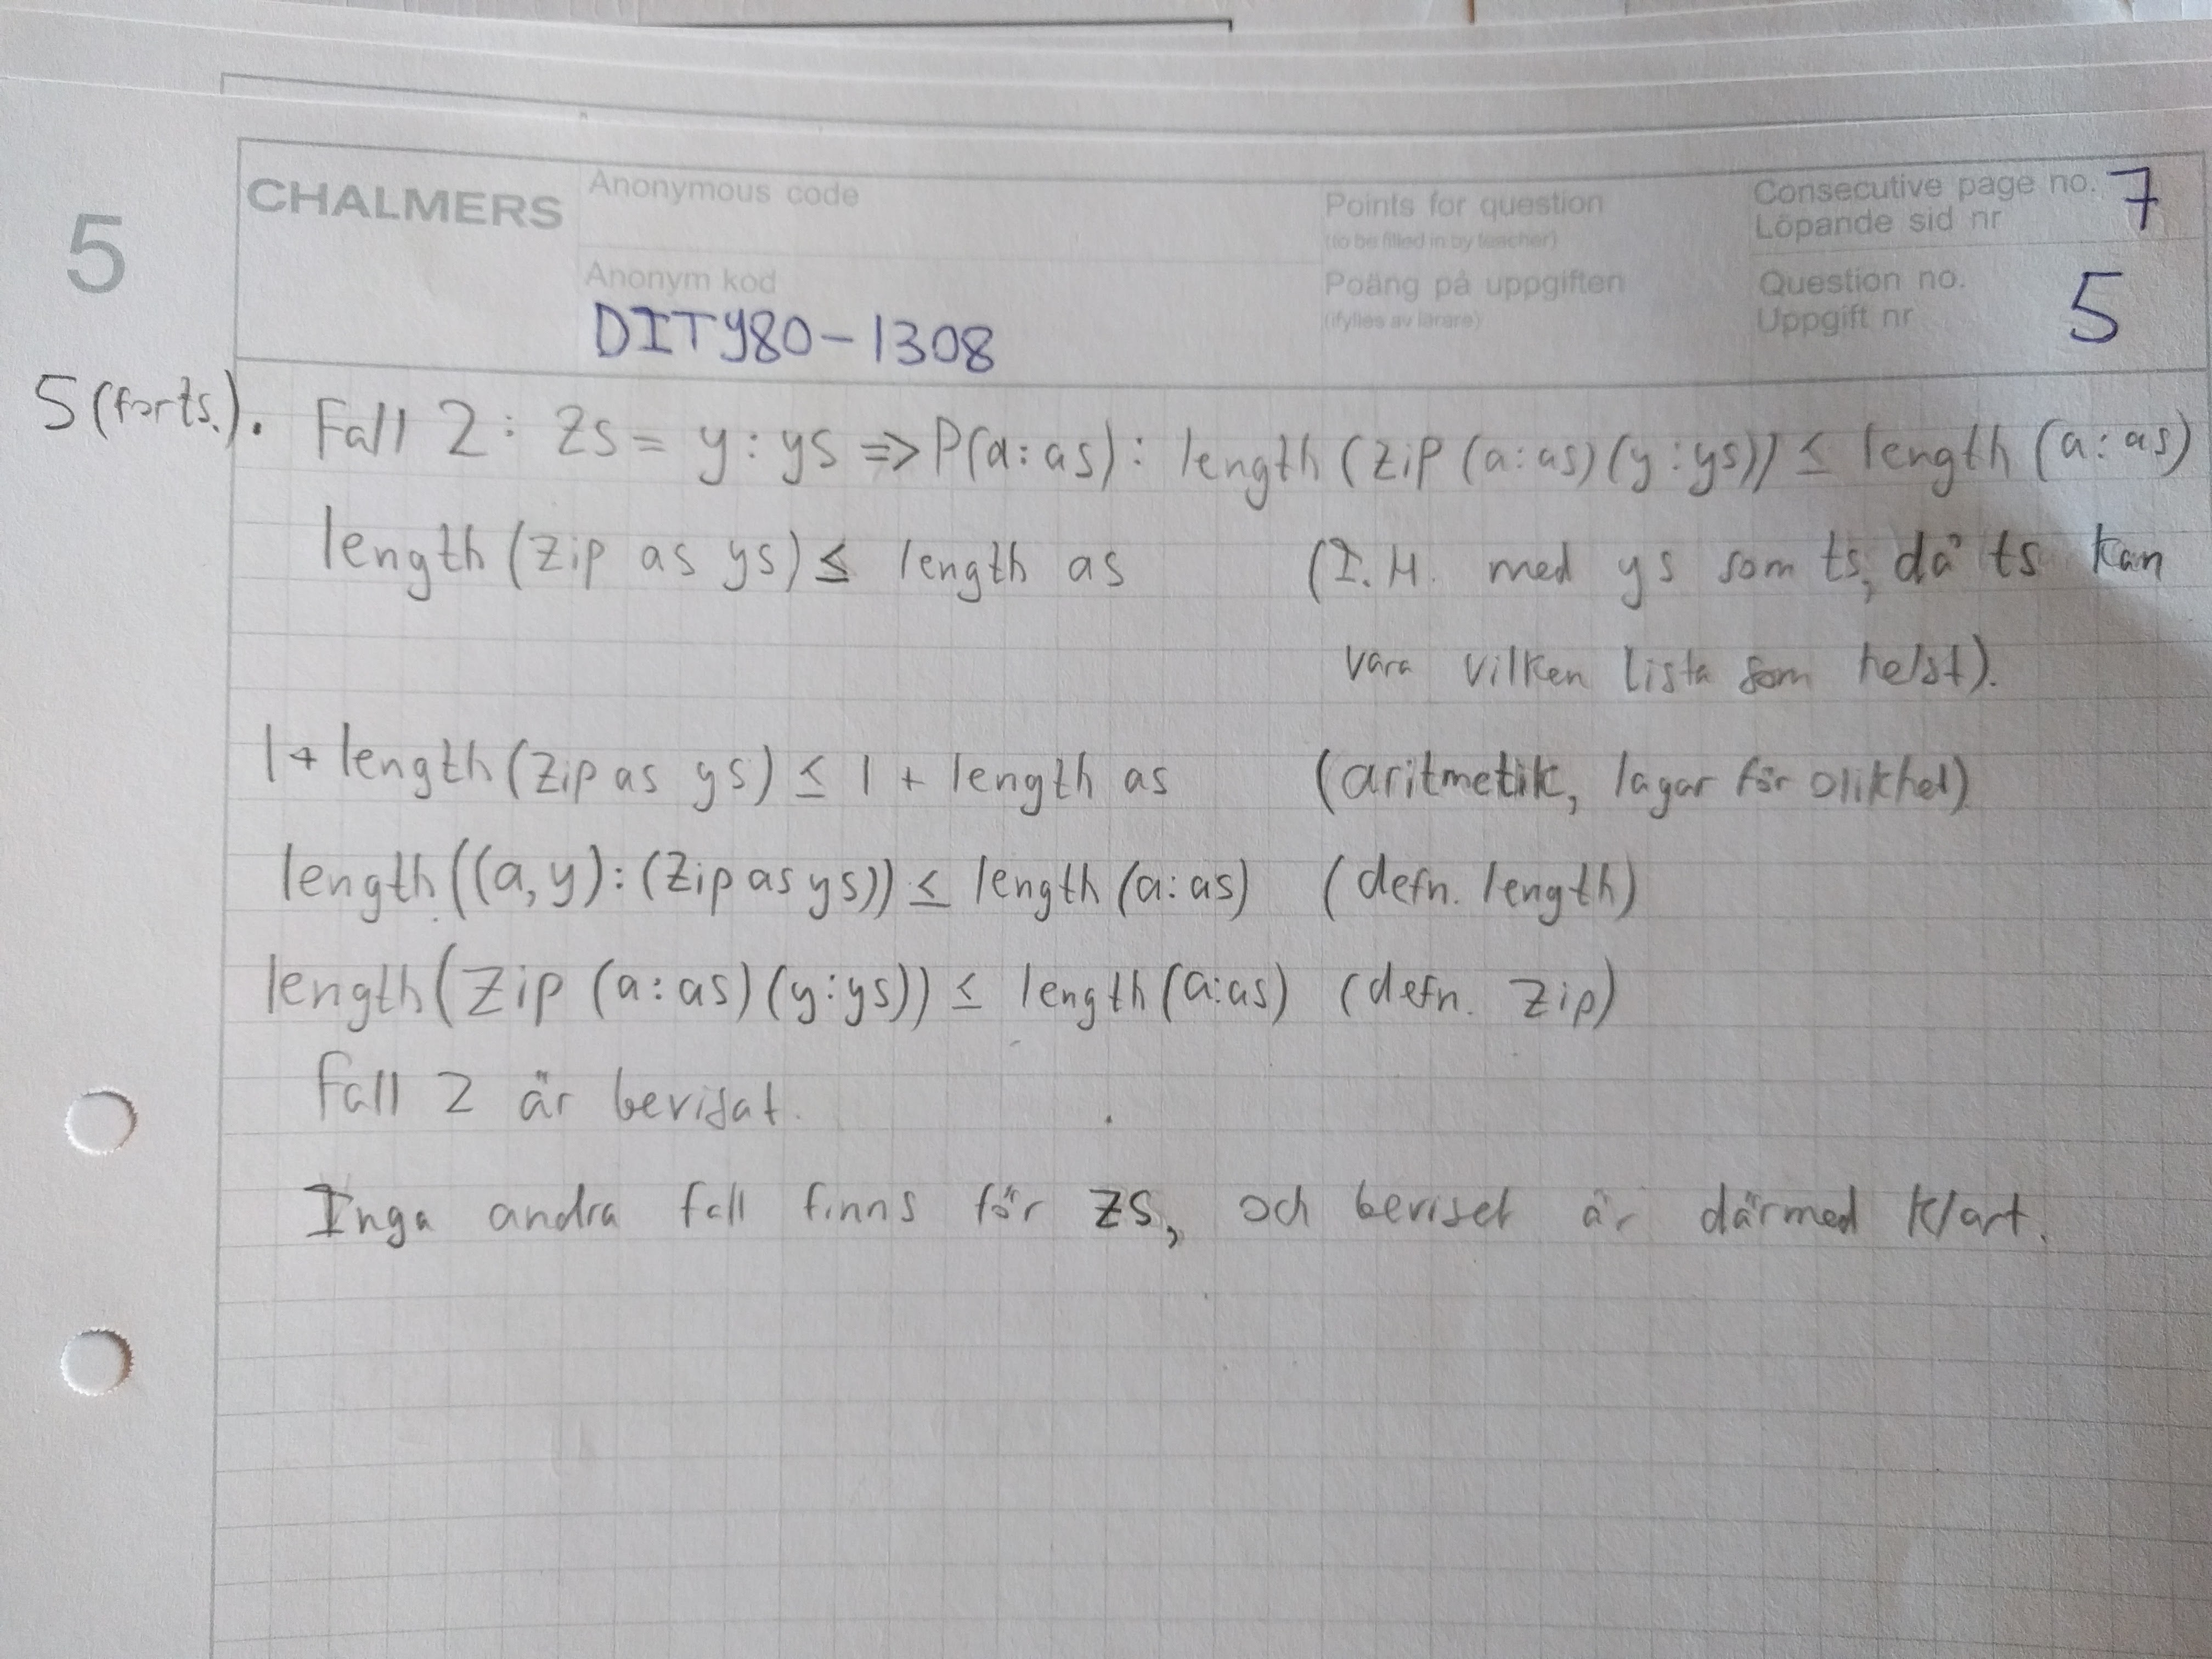 5
CHALMERS
Anonymous code
Anonym kod
DITY80-1308
Points for question
(to be filled in by teacher)
Poäng på uppgiften
(ifylles av lärare)
Consecutive page no. 7
Löpande sid nr
Question no. 5
Uppgift nr
5 (forts.). Fall 2: zs = y:ys => P(a:as): length (zip (a:as) (y:ys)) ≤ length (a:as)
length (zip as ys) ≤ length as (I.H. med ys som ts, då ts kan
vara vilken lista som helst).
1+ length (zip as ys) ≤ 1 + length as (aritmetik, lagar för olikhet)
length ((a,y):(zip as ys)) ≤ length (a:as) (defn. length)
length (zip (a:as) (y:ys)) ≤ length (a:as) (defn. zip)
Fall 2 är bevisat.
Inga andra fall finns för zs, och beviset är därmed klart.